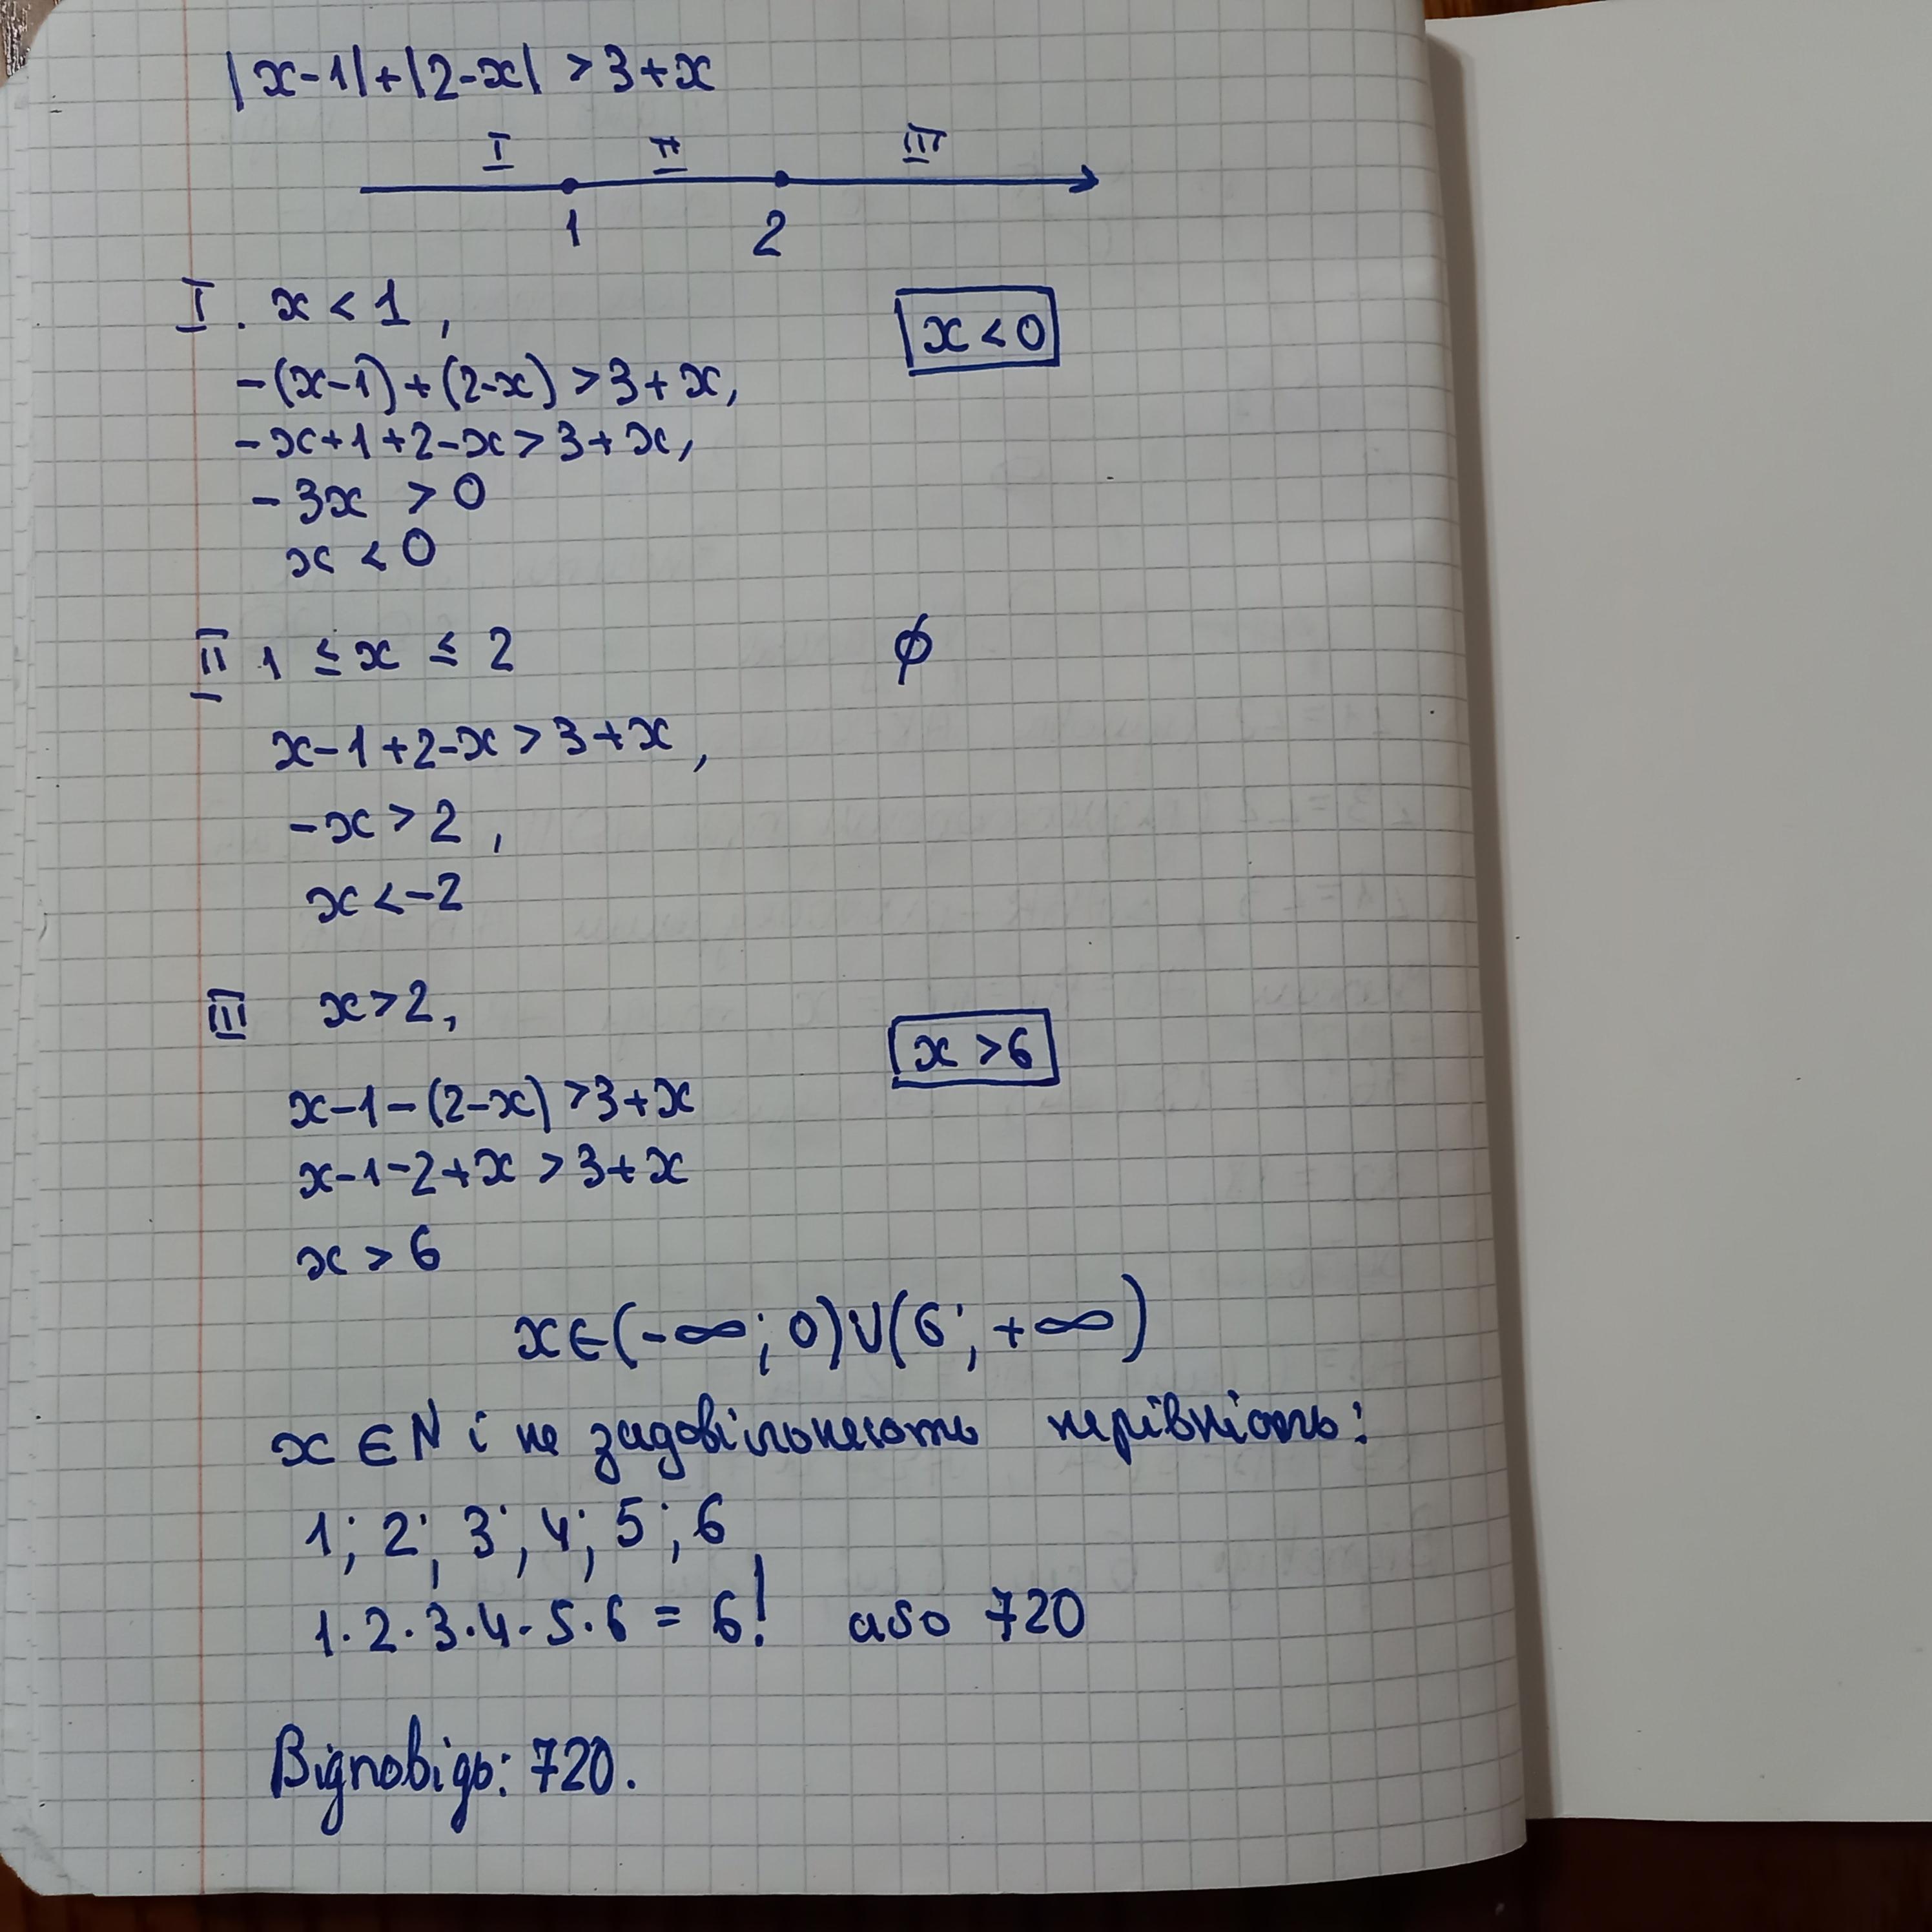 |x-1|+|2-x| > 3+x
I II III
1 2
I. x < 1,
x < 0
-(x-1)+(2-x) > 3+x,
-x+1+2-x > 3+x,
-3x > 0
x < 0
II 1 ≤ x ≤ 2
∅
x-1+2-x > 3+x,
-x > 2,
x < -2
III x > 2,
x > 6
x-1-(2-x) > 3+x
x-1-2+x > 3+x
x > 6
x∈(-∞; 0)∪(6; +∞)
x∈N і не задовільняють нерівність:
1; 2; 3; 4; 5; 6
1·2·3·4·5·6 = 6! або 720
Відповідь: 720.